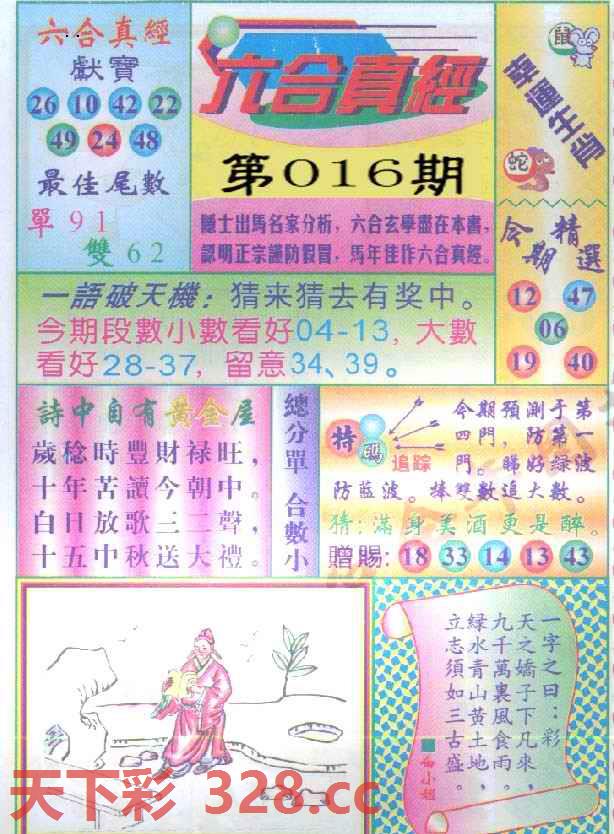 六合真經
獻寶
26 10 42 22
49 24 48
最佳尾數
單 9 1
雙 6 2
六合真經
第016期
隱士出馬名家分析，六合玄學盡在本書，
認明正宗謹防假冒，馬年佳作六合真經。
鼠
幸運生肖
蛇
今期精選
12 47
06
19 40
一語破天機：猜来猜去有奖中。
今期段數小數看好04-13，大數
看好28-37，留意34、39。
詩中自有黃金屋
歲稔時豐財禄旺，
十年苦讀今朝中。
白日放歌三二聲，
十五中秋送大禮。
總分單 合數小
特碼
追踪
今期預測于第
四門，防第一
門。睇好绿波
防藍波。捧雙數追大數。
猜：滿身美酒更是醉。
贈賜：18 33 14 13 43
一字之曰：彩
天之嬌子下凡來，
九千萬裏風食雨，
緑水青山黃土地，
立志須如三古盛。
白小姐
天下彩 328.cc